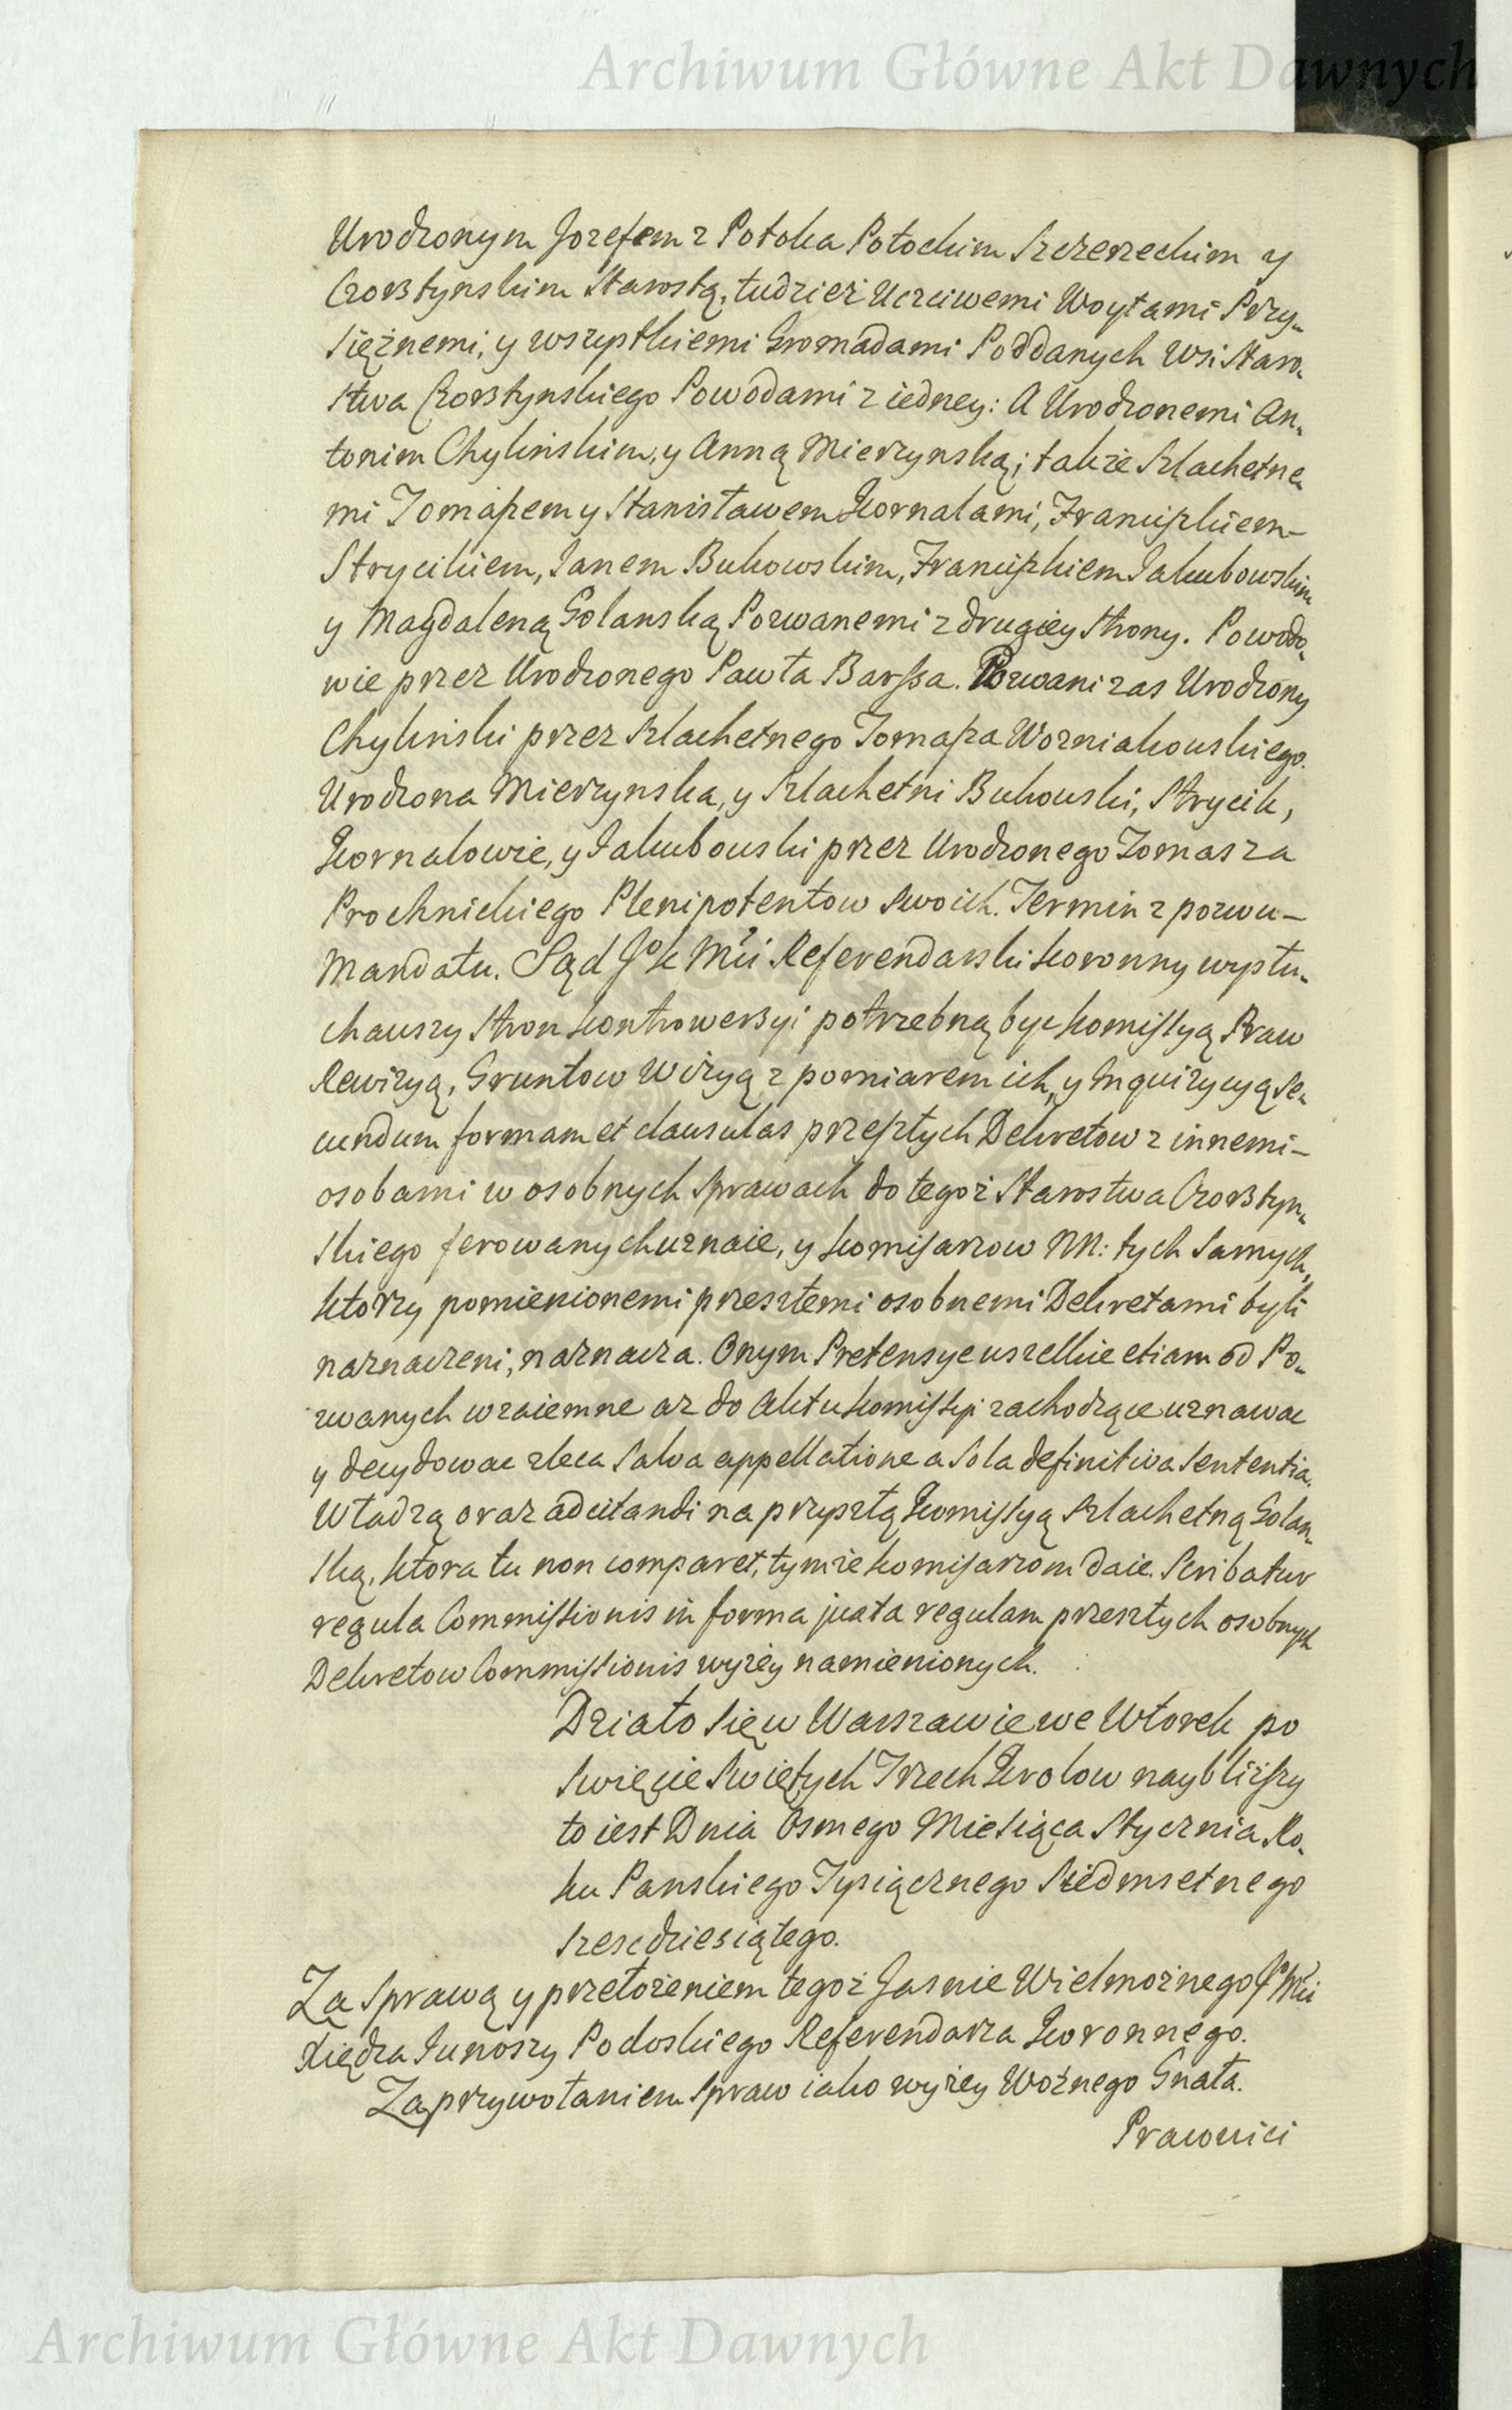 Archiwum Główne Akt Dawnych
Urodzonym Jozefem z Potoka Potockim Szczerzeckim y
Czorsztynskim Starostą, tudzież Uczciwemi Woytami Przy-
siężnemi, y wszystkiemi Gromadami Poddanych Wsi Staro-
stwa Czorsztynskiego Powodami z iedney: A Urodzonemi An-
tonim Chylińskim, y Anną Mierzynską; także Szlachetne-
mi Tomaszem y Stanisławem Kornalami, Franciszkiem
Strycikiem, Janem Bukowskim, Franciszkiem Jakubowskim
y Magdaleną Golanską Pozwanemi z drugiey Strony. Powodo-
wie przez Urodzonego Pawła Barssa. Pozwani zas Urodzony
Chyliński przez Szlachetnego Tomasza Wozniakowskiego.
Urodzona Mierzynska, y Szlachetni Bukowski, Strycik,
Kornalowie, y Jakubowski przez Urodzonego Tomasza
Prochnickiego Plenipotentow swoich. Termin z pozwu
Mandatu. Sąd JoK Mći Referendarski Koronny wysłu-
chawszy Stron Kontrowersyi potrzebną byc Komissyą Praw
Rewizyą, Gruntow Wizyą z pomiarem ich, y Inquizycyą se-
cundum formam et clausulas przeszłych Dekretow z innemi
osobami w osobnych Sprawach do tegoż Starostwa Czorsztyn-
skiego ferowanych uznaie, y Komisarzow NN: tych samych,
ktorzy pomienionemi przeszłemi osobnemi Dekretami byli
naznaczeni, naznacza. Onym Pretensye wszelkie etiam od Po-
zwanych wzaiemne az do Aktu Komissyi zachodzące uznawac
y decydowac zleca salva appellatione a sola definitiva sententia.
Władzą oraz adcitandi na przyszłą Komissyą Szlachetną Golan-
ską, ktora tu non comparet, tymże Komisarzom daie. Scribatur
regula Commissionis in forma juxta regulam przeszłych osobnych
Dekretow Commissionis wyżey namienionych.
Działo się w Warszawie we Wtorek po
Swięcie Swiętych Trzech Krolow nayblizszy
to iest Dnia Osmego Miesiąca Stycznia Ro-
ku Panskiego Tysiącznego Siedmsetnego
Szescdziesiątego.
Za Sprawą y przełożeniem tegoż Jasnie Wielmożnego Jo Mći
Xiędza Junoszy Podoskiego Referendarza Koronnego.
Za przywołaniem Spraw iako wyżey Woźnego Gnata.
Prawnici
Archiwum Główne Akt Dawnych